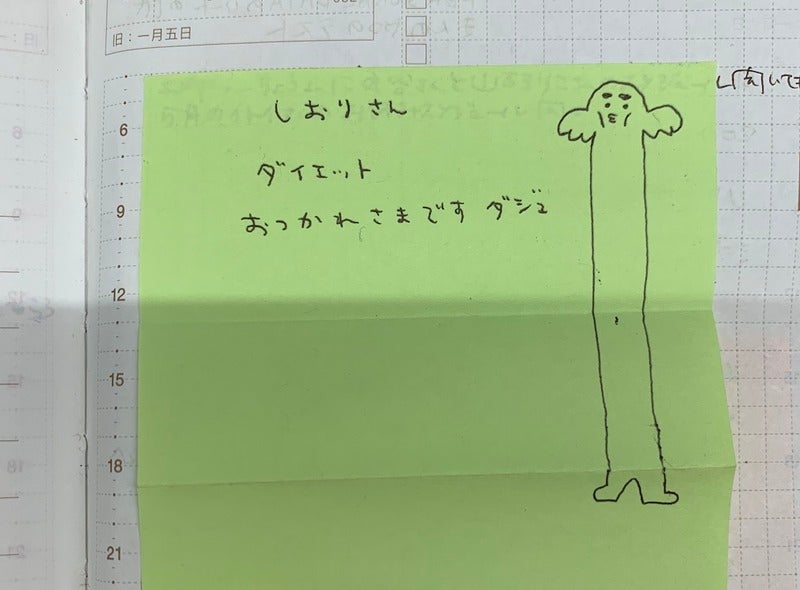 旧：一月五日
しおりさん
ダイエット
おつかれさまです ダジュ
6
9
12
15
18
21